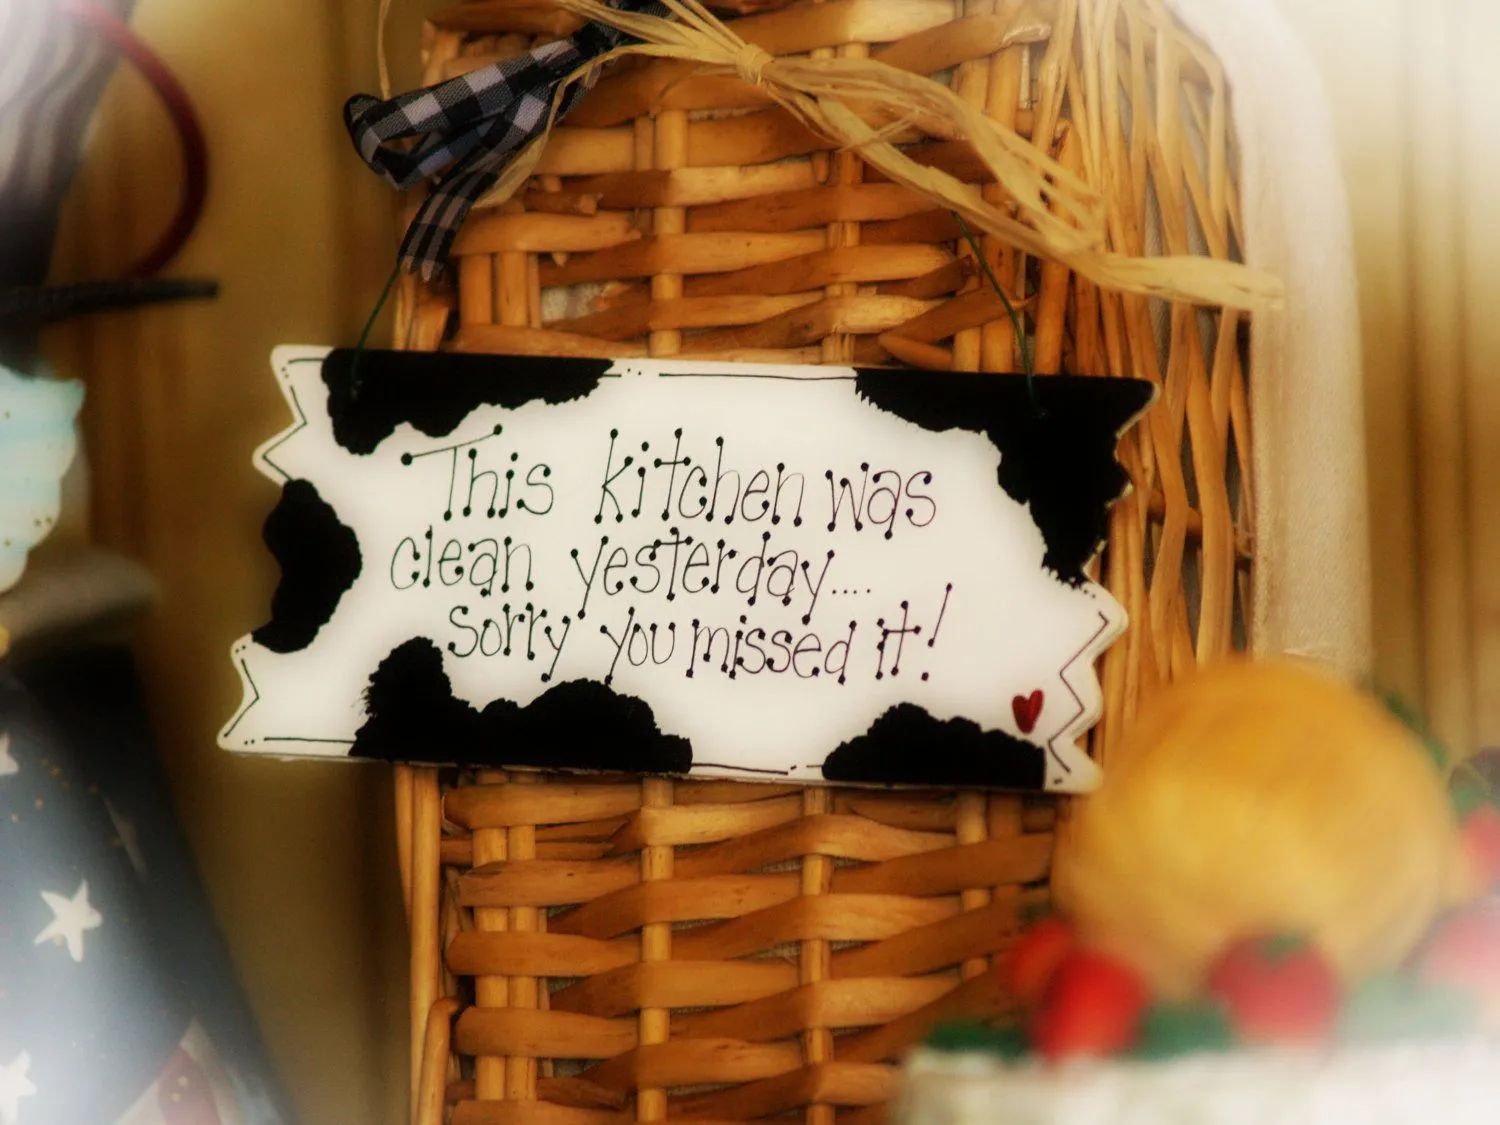 This kitchen was
clean yesterday....
sorry you missed it!